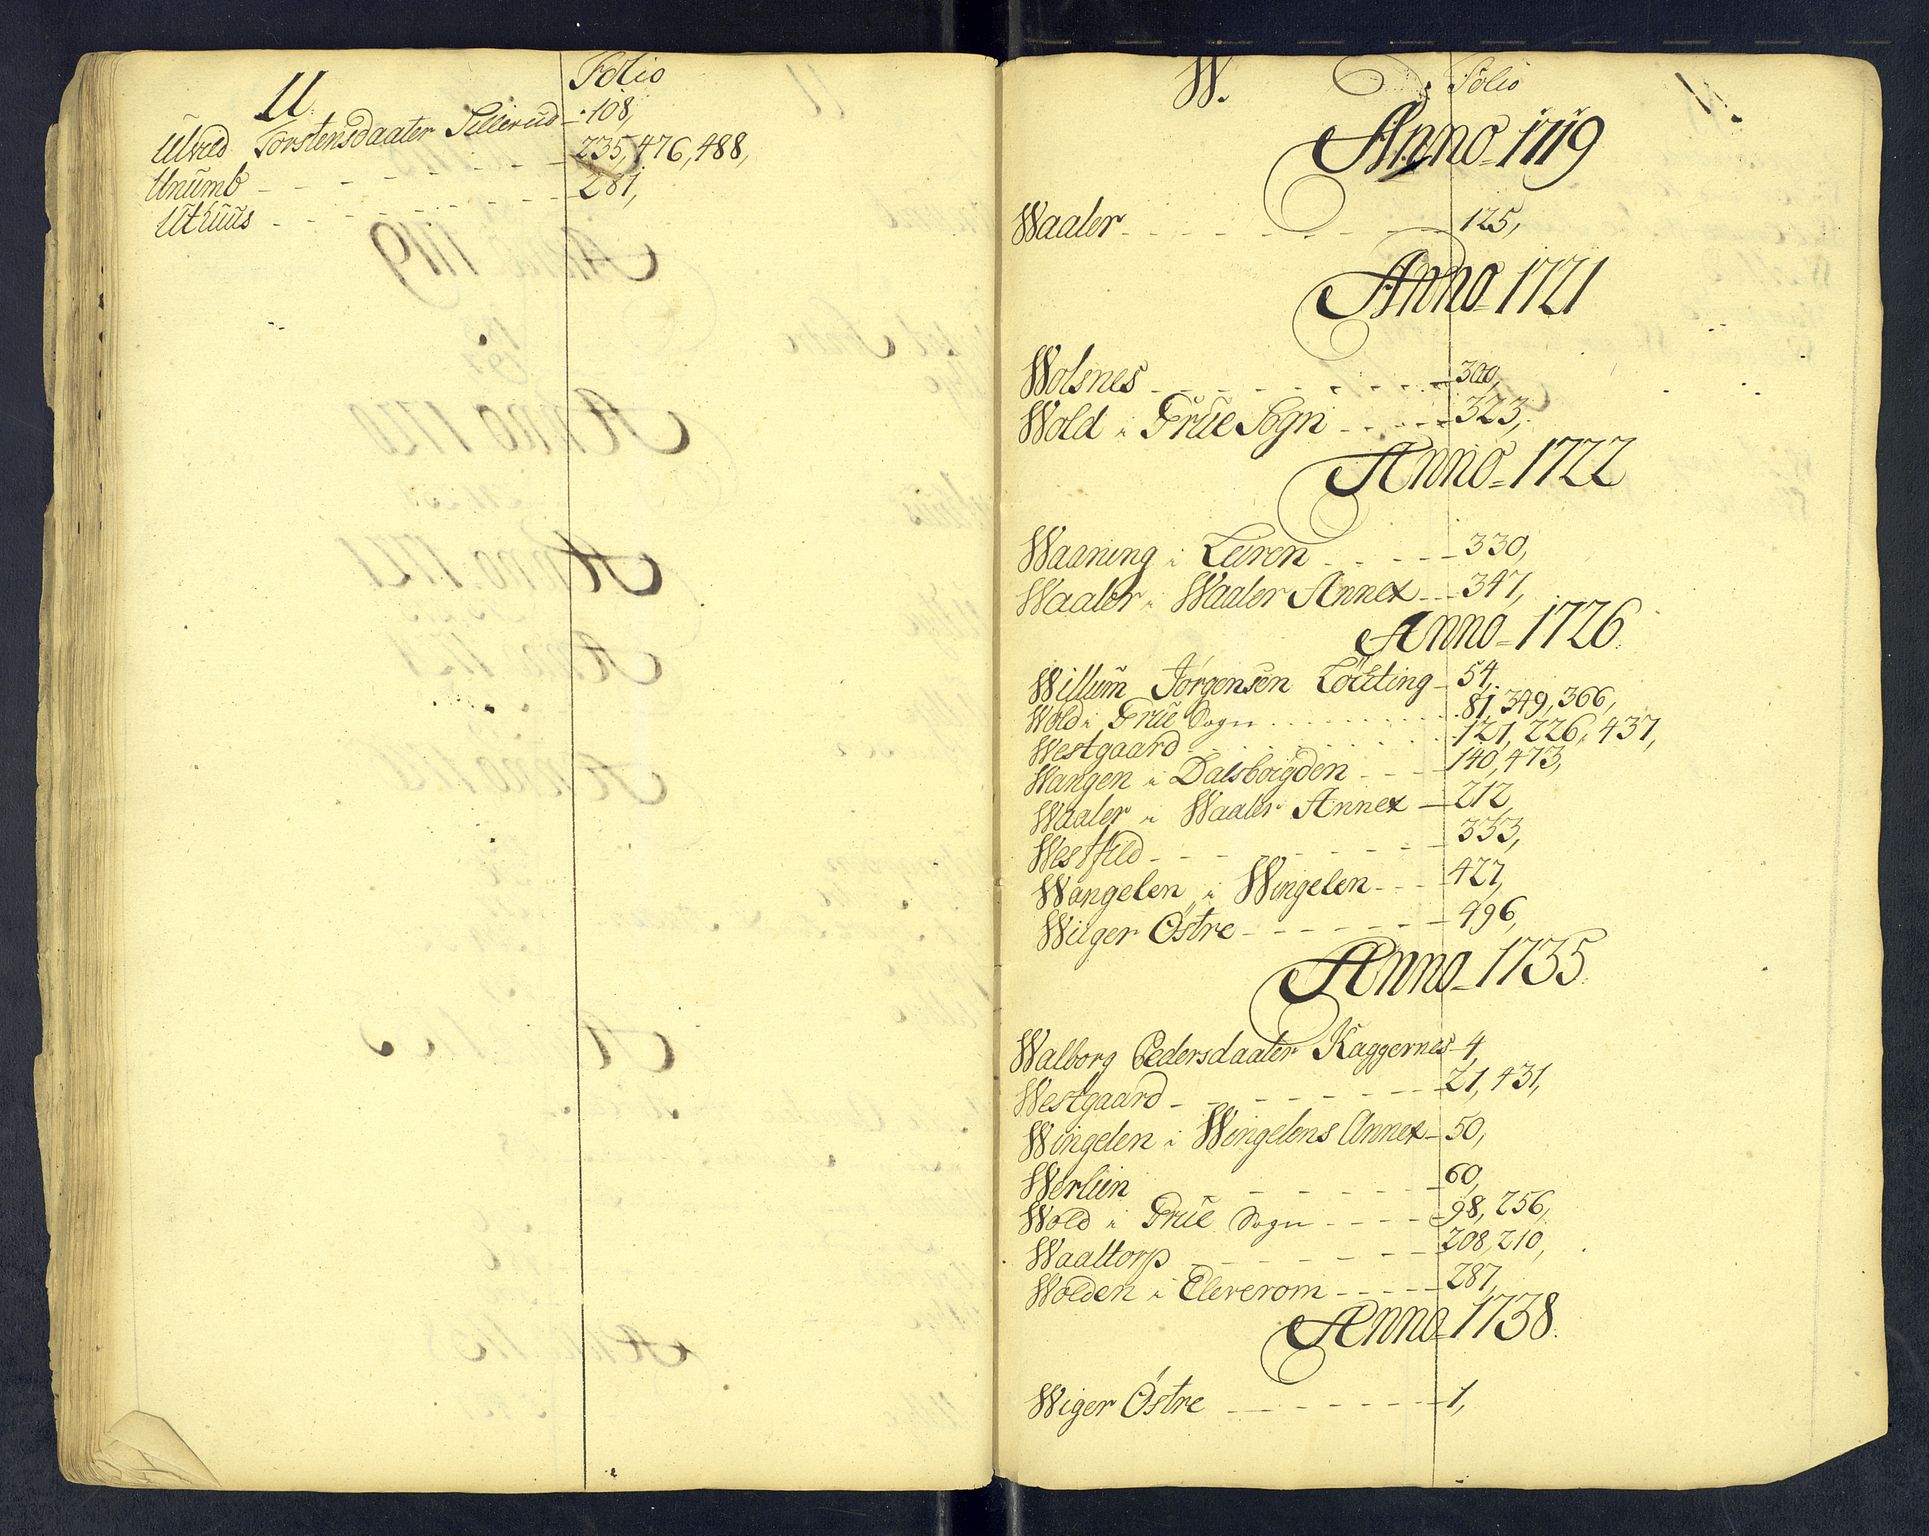 U. Folio
Ulvild Torstensdaater Sillerud - 108,
Unumb - - - - - - 235, 476, 488,
Uthuus - - - - - - 281,
W. Folio
Anno 1719
Waaler - - - - - - 125,
Anno 1721
Wolsnes - - - - - - 300,
Wold i True Sogn - - - - 323,
Anno 1722
Waaning i Leiren - - - - 330,
Waaler i Waaler Annex - - 347,
Anno 1726
Willum Jörgensen - 54,
Wold i True Sogn - - - - 81, 349, 366,
Westgaard - - - - - - 121, 226, 437,
Wangen i Dalsbøygden - - - 140, 473,
Waaler i Waaler Annex - 212,
Westfild - - - - - - 333,
Wangelen, i Wingelen - - - 427,
Wiiger Östre - - - - - - 496,
Anno 1735
Walborg Pedersdaater Kaggernes - 4,
Westgaard - - - - - - 21, 431,
Wingelen i Wingelens Annex - 50,
Werliin - - - - - - 60,
Wold i True Sogn - - - - 98, 256,
Waaltorp - - - - - - 208, 210,
Wolden i Elverom - - - - 287,
Anno 1738
Wiger Östre - - - - - - 1,